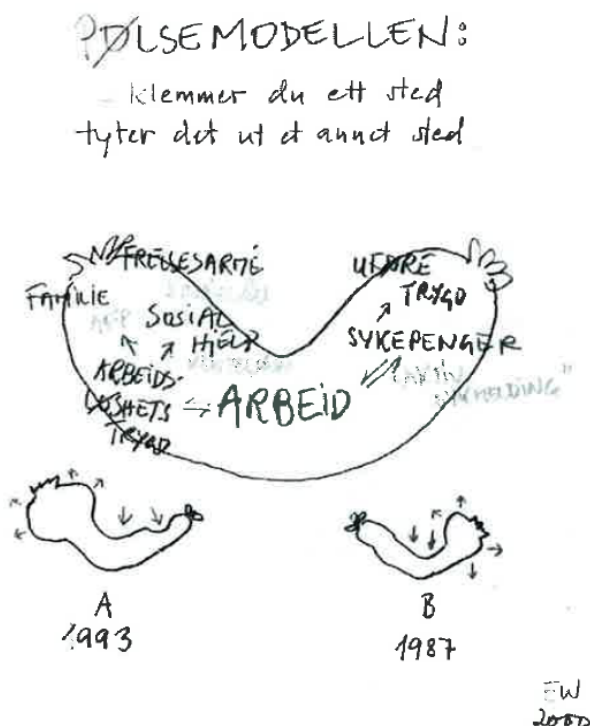 PØLSEMODELLEN:
klemmer du ett sted
tyter det ut et annet sted
FRELSESARMÉ
FAMILIE
SOSIAL
HJELP
ARBEIDS-
LØSHETS
TRYGD
ARBEID
UFØRE
TRYGD
SYKEPENGER
A
1993
B
1987
EW
2000